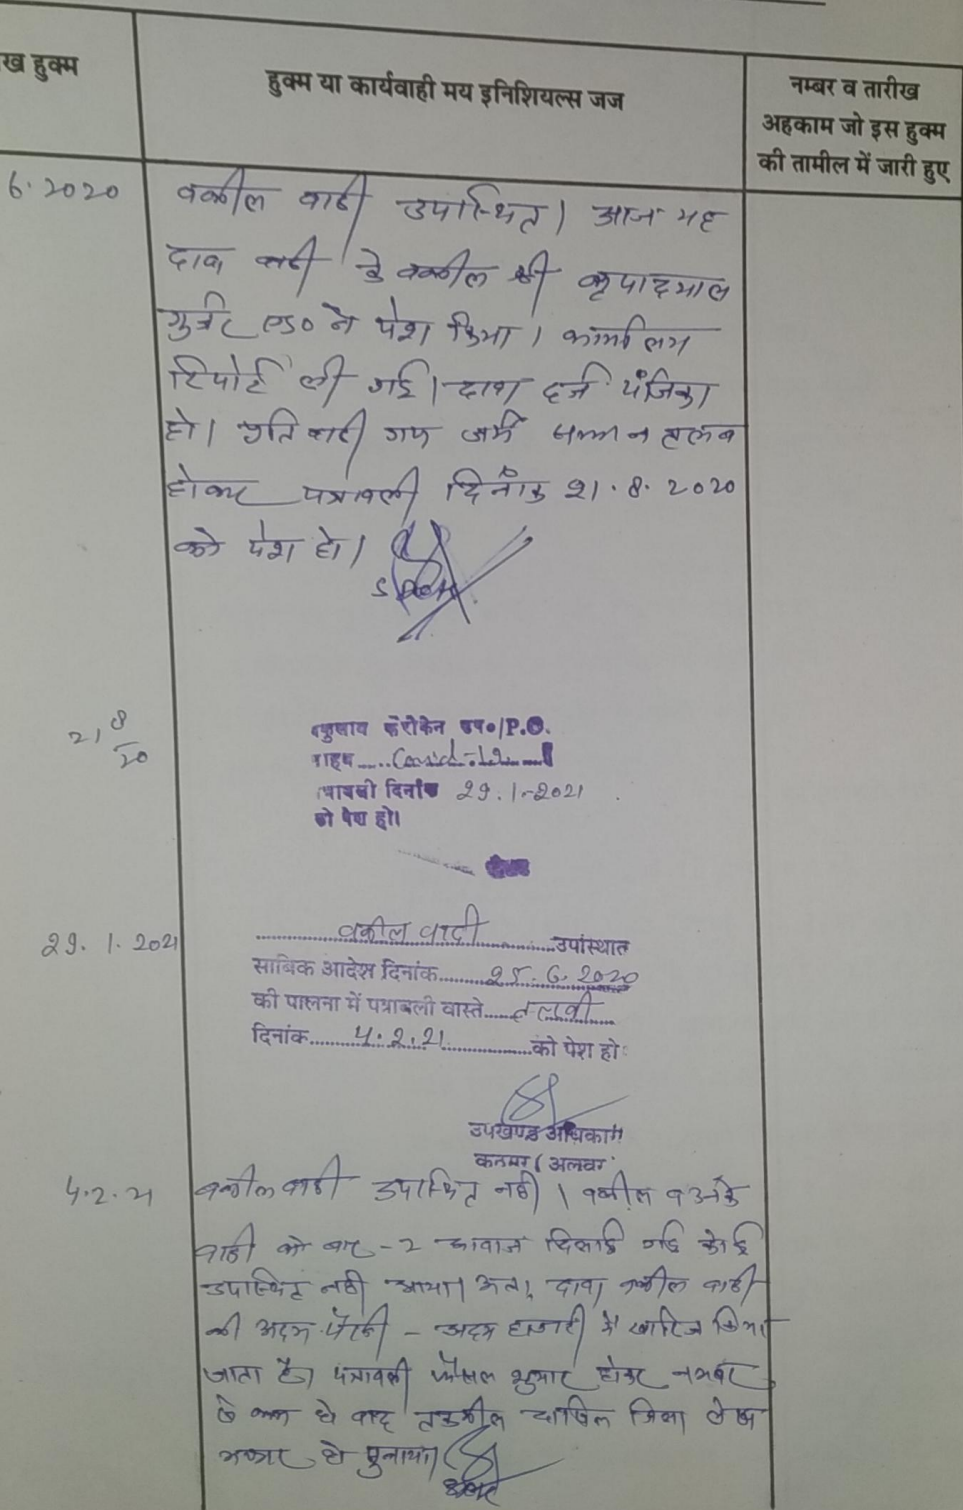 ख हुक्म
हुक्म या कार्यवाही मय इनिशियल्स जज
नम्बर व तारीख
अहकाम जो इस हुक्म
की तामील में जारी हुए
6.2020
वकील वादी उपस्थित। आज यह
दावा वादी के वकील श्री कृपादयाल
गुर्जर ने पेश किया। कार्यालय
रिपोर्ट ली गई। दावा दर्ज पंजिका
हो। प्रतिवादी गण जर्ये सम्मन तलब
होकर पत्रावली दिनांक 21.8.2020
को पेश हो।
21 8/20
P.O.
Covid-19
दिनांक 29.1.2021
को पेश हो।
29.1.2021
वकील वादी उपस्थित
साबिक आदेश दिनांक 25.6.2020
की पालना में पत्रावली वास्ते तलबी
दिनांक 4.2.21 को पेश हो
उपखण्ड अधिकारी
कठूमर (अलवर
4.2.21
वकील वादी उपस्थित नहीं। वकील व उनके
वादी को बार-2 आवाज दिलाई गई कोई
उपस्थित नहीं आया। अतः दावा वकील वादी
की अदम पैरवी - अदम हाजरी में खारिज किया
जाता है। पत्रावली फैसल शुमार होकर नम्बर
से कम हो बाद तकमील दाखिल जिला लेखा